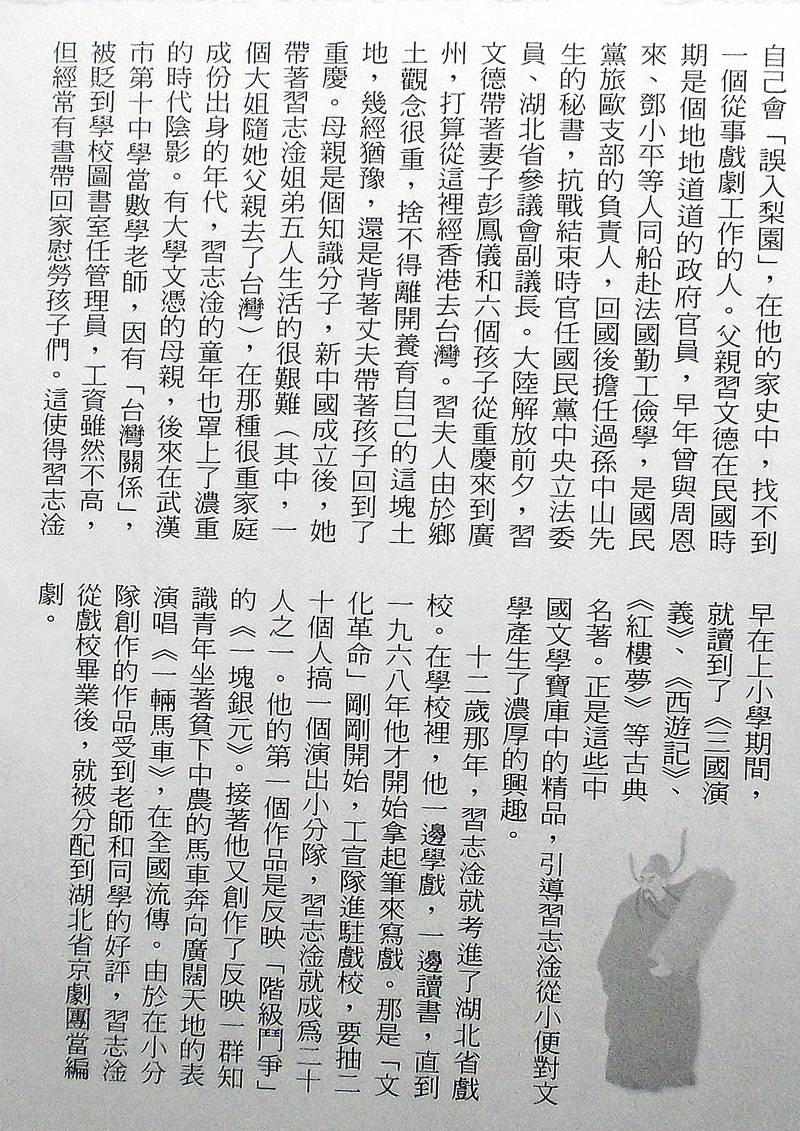 自己會「誤入梨園」，在他的家史中，找不到
一個從事戲劇工作的人。父親習文德在民國時
期是個地地道道的政府官員，早年曾與周恩
來、鄧小平等人同船赴法國勤工儉學，是國民
黨旅歐支部的負責人，回國後擔任過孫中山先
生的秘書，抗戰結束時官任國民黨中央立法委
員、湖北省參議會副議長。大陸解放前夕，習
文德帶著妻子彭鳳儀和六個孩子從重慶來到廣
州，打算從這裡經香港去台灣。習夫人由於鄉
土觀念很重，捨不得離開養育自己的這塊土
地，幾經猶豫，還是背著丈夫帶著孩子回到了
重慶。母親是個知識分子，新中國成立後，她
帶著習志淦姐弟五人生活的很艱難（其中，一
個大姐隨她父親去了台灣），在那種很重家庭
成份出身的年代，習志淦的童年也罩上了濃重
的時代陰影。有大學文憑的母親，後來在武漢
市第十中學當數學老師，因有「台灣關係」，
被貶到學校圖書室任管理員，工資雖然不高，
但經常有書帶回家慰勞孩子們。這使得習志淦
早在上小學期間，
就讀到了《三國演
義》、《西遊記》、
《紅樓夢》等古典
名著。正是這些中
國文學寶庫中的精品，引導習志淦從小便對文
學產生了濃厚的興趣。
十二歲那年，習志淦就考進了湖北省戲
校。在學校裡，他一邊學戲，一邊讀書，直到
一九六八年他才開始拿起筆來寫戲。那是「文
化革命」剛剛開始，工宣隊進駐戲校，要抽二
十個人搞一個演出小分隊，習志淦就成為二十
人之一。他的第一個作品是反映「階級鬥爭」
的《一塊銀元》。接著他又創作了反映一群知
識青年坐著貧下中農的馬車奔向廣闊天地的表
演唱《一輛馬車》，在全國流傳。由於在小分
隊創作的作品受到老師和同學的好評，習志淦
從戲校畢業後，就被分配到湖北省京劇團當編
劇。